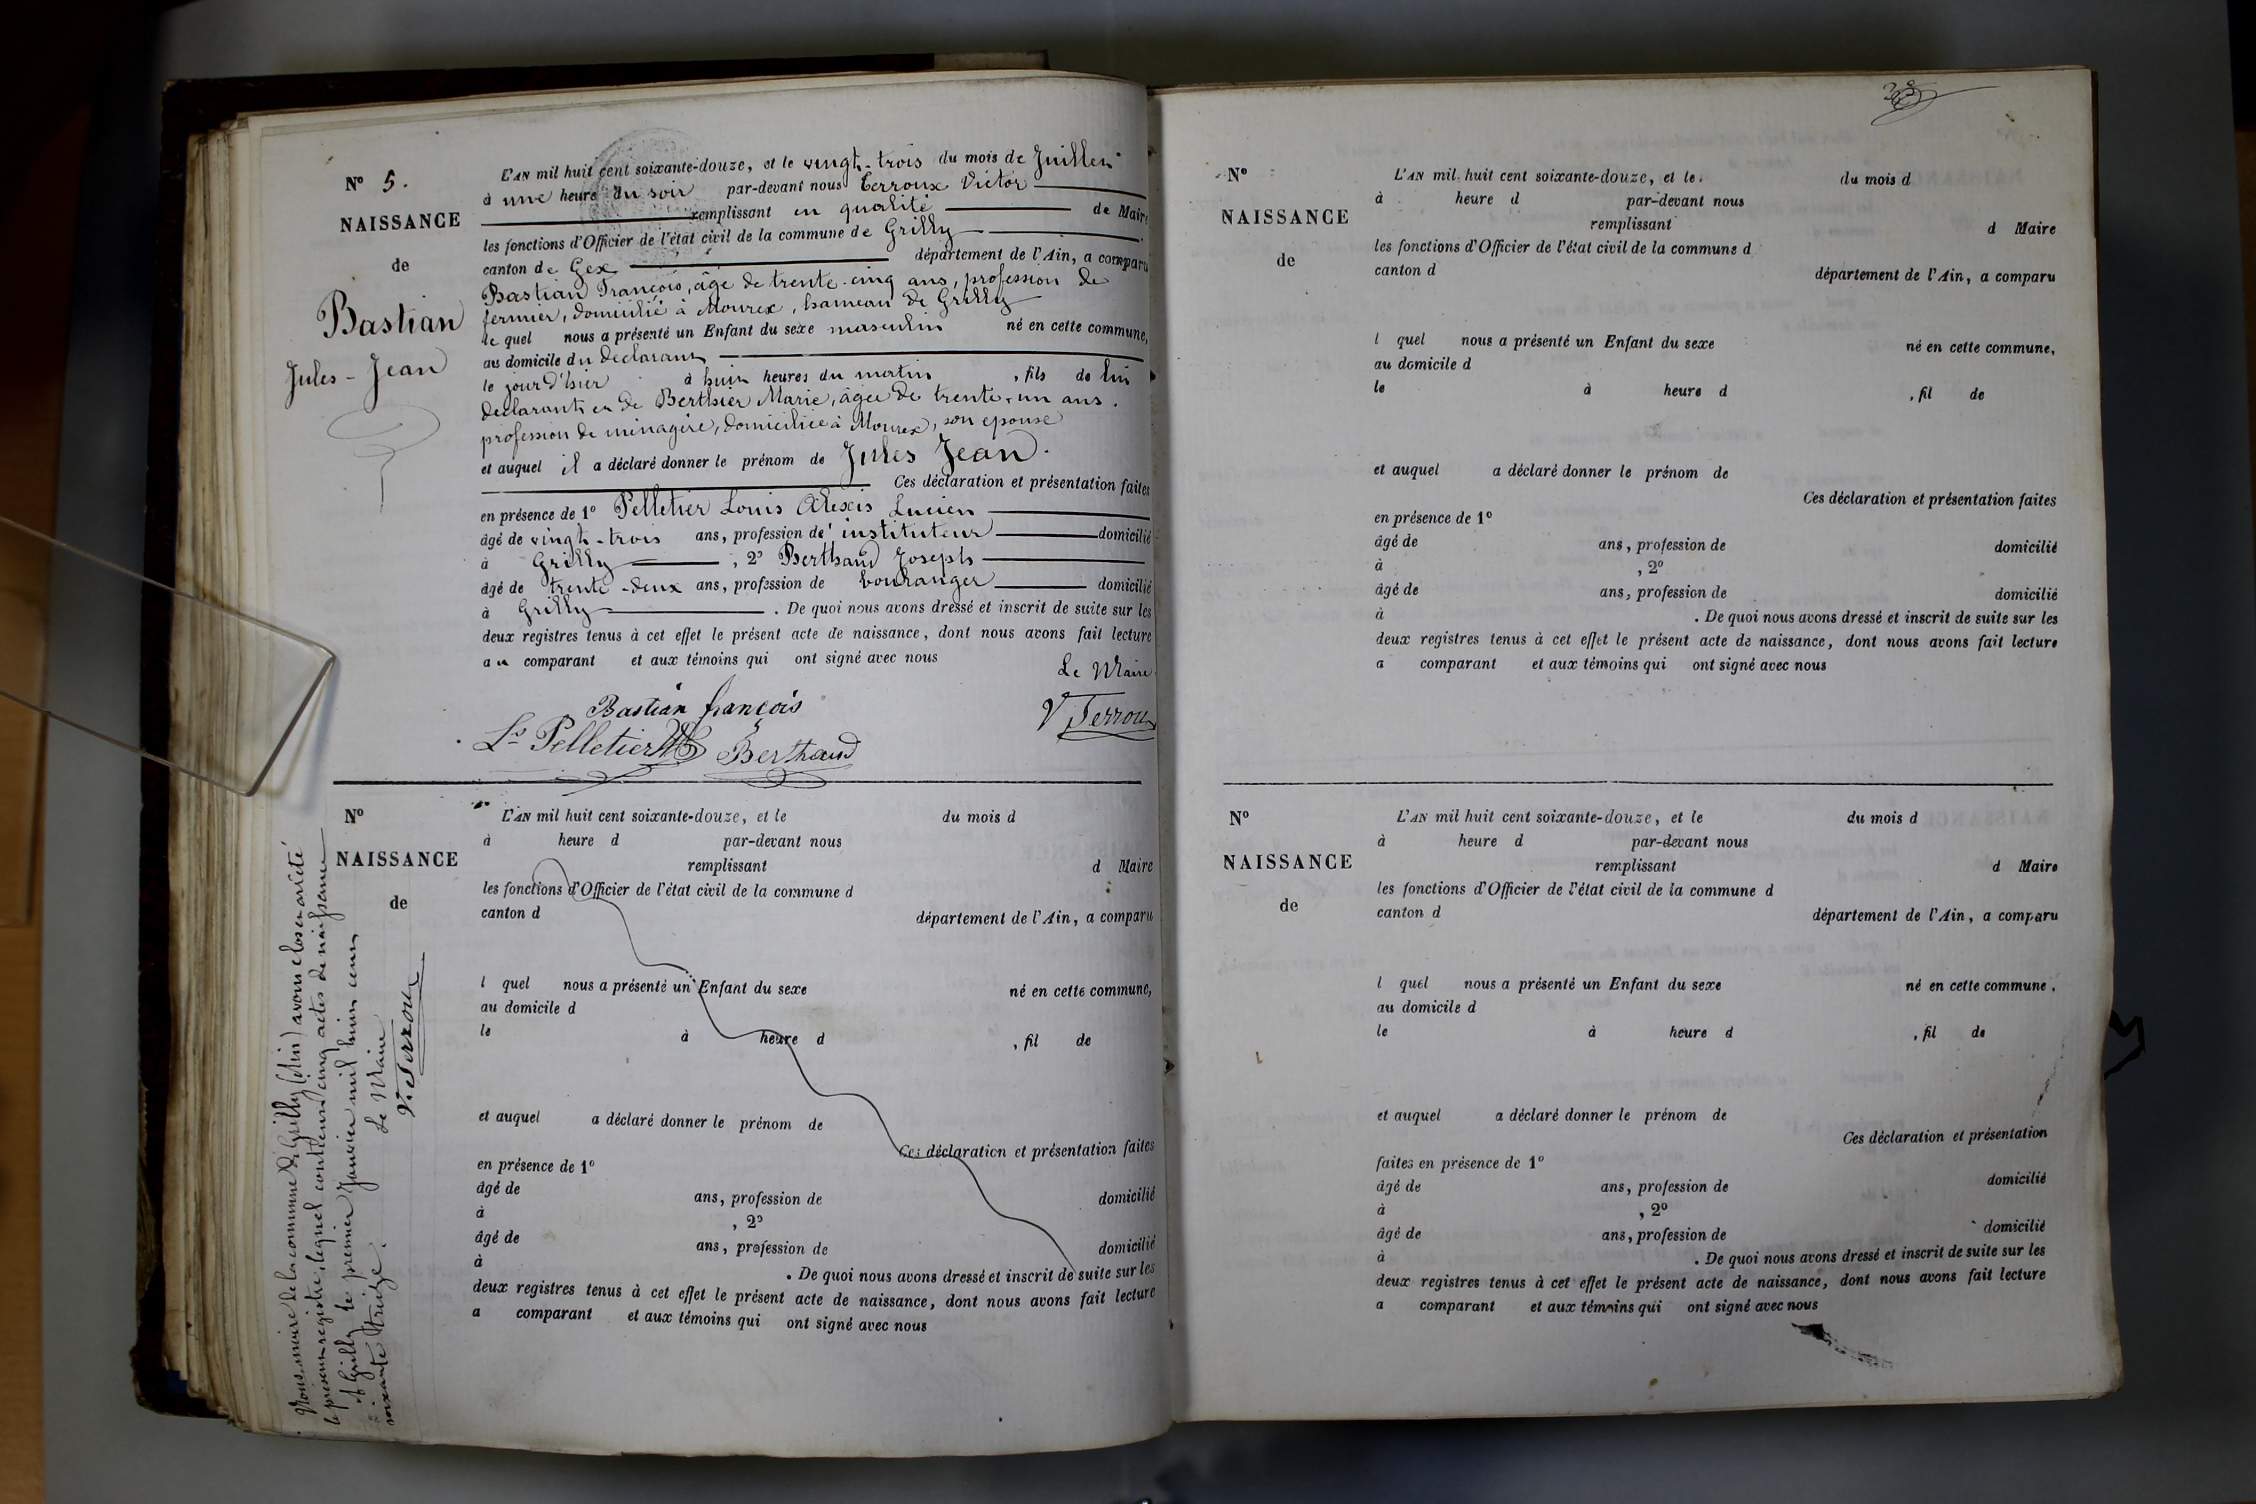 N° 5.
NAISSANCE
de
Bastian
Jules-Jean
L'AN mil huit cent soixante-douze, et le vingt-trois du mois de Juillet
à une heure du soir par-devant nous Terroux Victor
remplissant en qualité de Maire
les fonctions d'Officier de l'état civil de la commune de Grilly
canton de Gex département de l'Ain, a comparu
Bastian François, âgé de trente-cinq ans, profession de
fermier, domicilié à Mourex, hameau de Grilly
le quel nous a présenté un Enfant du sexe masculin né en cette commune,
au domicile du déclarant
le jour d'hier à huit heures du matin, fils de lui
déclarant et de Berthier Marie, âgée de trente-un ans.
profession de ménagère, domiciliée à Mourex, son épouse
et auquel il a déclaré donner le prénom de Jules Jean.
Ces déclaration et présentation faites
en présence de 1° Pelletier Louis Alexis Lucien
âgé de vingt-trois ans, profession de instituteur domicilié
à Grilly, 2° Berthaud Joseph
âgé de trente-deux ans, profession de boulanger domicilié
à Grilly. De quoi nous avons dressé et inscrit de suite sur les
deux registres tenus à cet effet le présent acte de naissance, dont nous avons fait lecture
au comparant et aux témoins qui ont signé avec nous
Le Maire
Bastian françois
V Terroux
Ls Pelletier Berthaud
N°
NAISSANCE
de
L'AN mil huit cent soixante-douze, et le du mois d
à heure d par-devant nous
remplissant d Maire
les fonctions d'Officier de l'état civil de la commune d
canton d département de l'Ain, a comparu
l quel nous a présenté un Enfant du sexe né en cette commune,
au domicile d
le à heure d , fil de
et auquel a déclaré donner le prénom de
Ces déclaration et présentation faites
en présence de 1°
âgé de ans, profession de domicilié
à , 2°
âgé de ans, profession de domicilié
à . De quoi nous avons dressé et inscrit de suite sur les
deux registres tenus à cet effet le présent acte de naissance, dont nous avons fait lecture
a comparant et aux témoins qui ont signé avec nous
Nous, maire de la commune de Grilly (Ain) avons clos et arrêté
le présent registre, lequel contient cinq actes de naissance
A Grilly le premier Janvier mil huit cent
soixante treize.
Le Maire
V. Terroux
N°
NAISSANCE
de
L'AN mil huit cent soixante-douze, et le. du mois d
à heure d par-devant nous
remplissant d Maire
les fonctions d'Officier de l'état civil de la commune d
canton d département de l'Ain, a comparu
l quel nous a présenté un Enfant du sexe né en cette commune,
au domicile d
le à heure d , fil de
et auquel a déclaré donner le prénom de
Ces déclaration et présentation faites
en présence de 1°
âgé de ans, profession de domicilié
à , 2°
âgé de ans, profession de domicilié
à . De quoi nous avons dressé et inscrit de suite sur les
deux registres tenus à cet effet le présent acte de naissance, dont nous avons fait lecture
a comparant et aux témoins qui ont signé avec nous
N°
NAISSANCE
de
L'AN mil huit cent soixante-douze, et le du mois d
à heure d par-devant nous
remplissant d Maire
les fonctions d'Officier de l'état civil de la commune d
canton d département de l'Ain, a comparu
l quel nous a présenté un Enfant du sexe né en cette commune.
au domicile d
le à heure d , fil de
et auquel a déclaré donner le prénom de
Ces déclaration et présentation
faites en présence de 1°
âgé de ans, profession de domicilié
à , 2°
âgé de ans, profession de domicilié
à . De quoi nous avons dressé et inscrit de suite sur les
deux registres tenus à cet effet le présent acte de naissance, dont nous avons fait lecture
a comparant et aux témoins qui ont signé avec nous